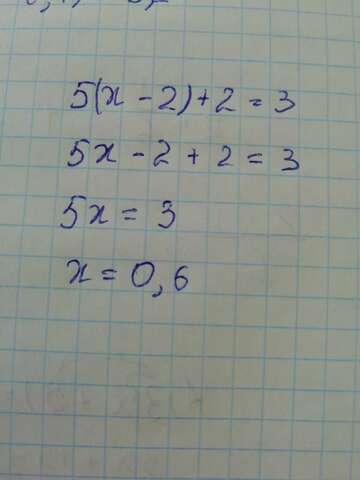 5(x - 2) + 2 = 3
5x - 2 + 2 = 3
5x = 3
x = 0,6